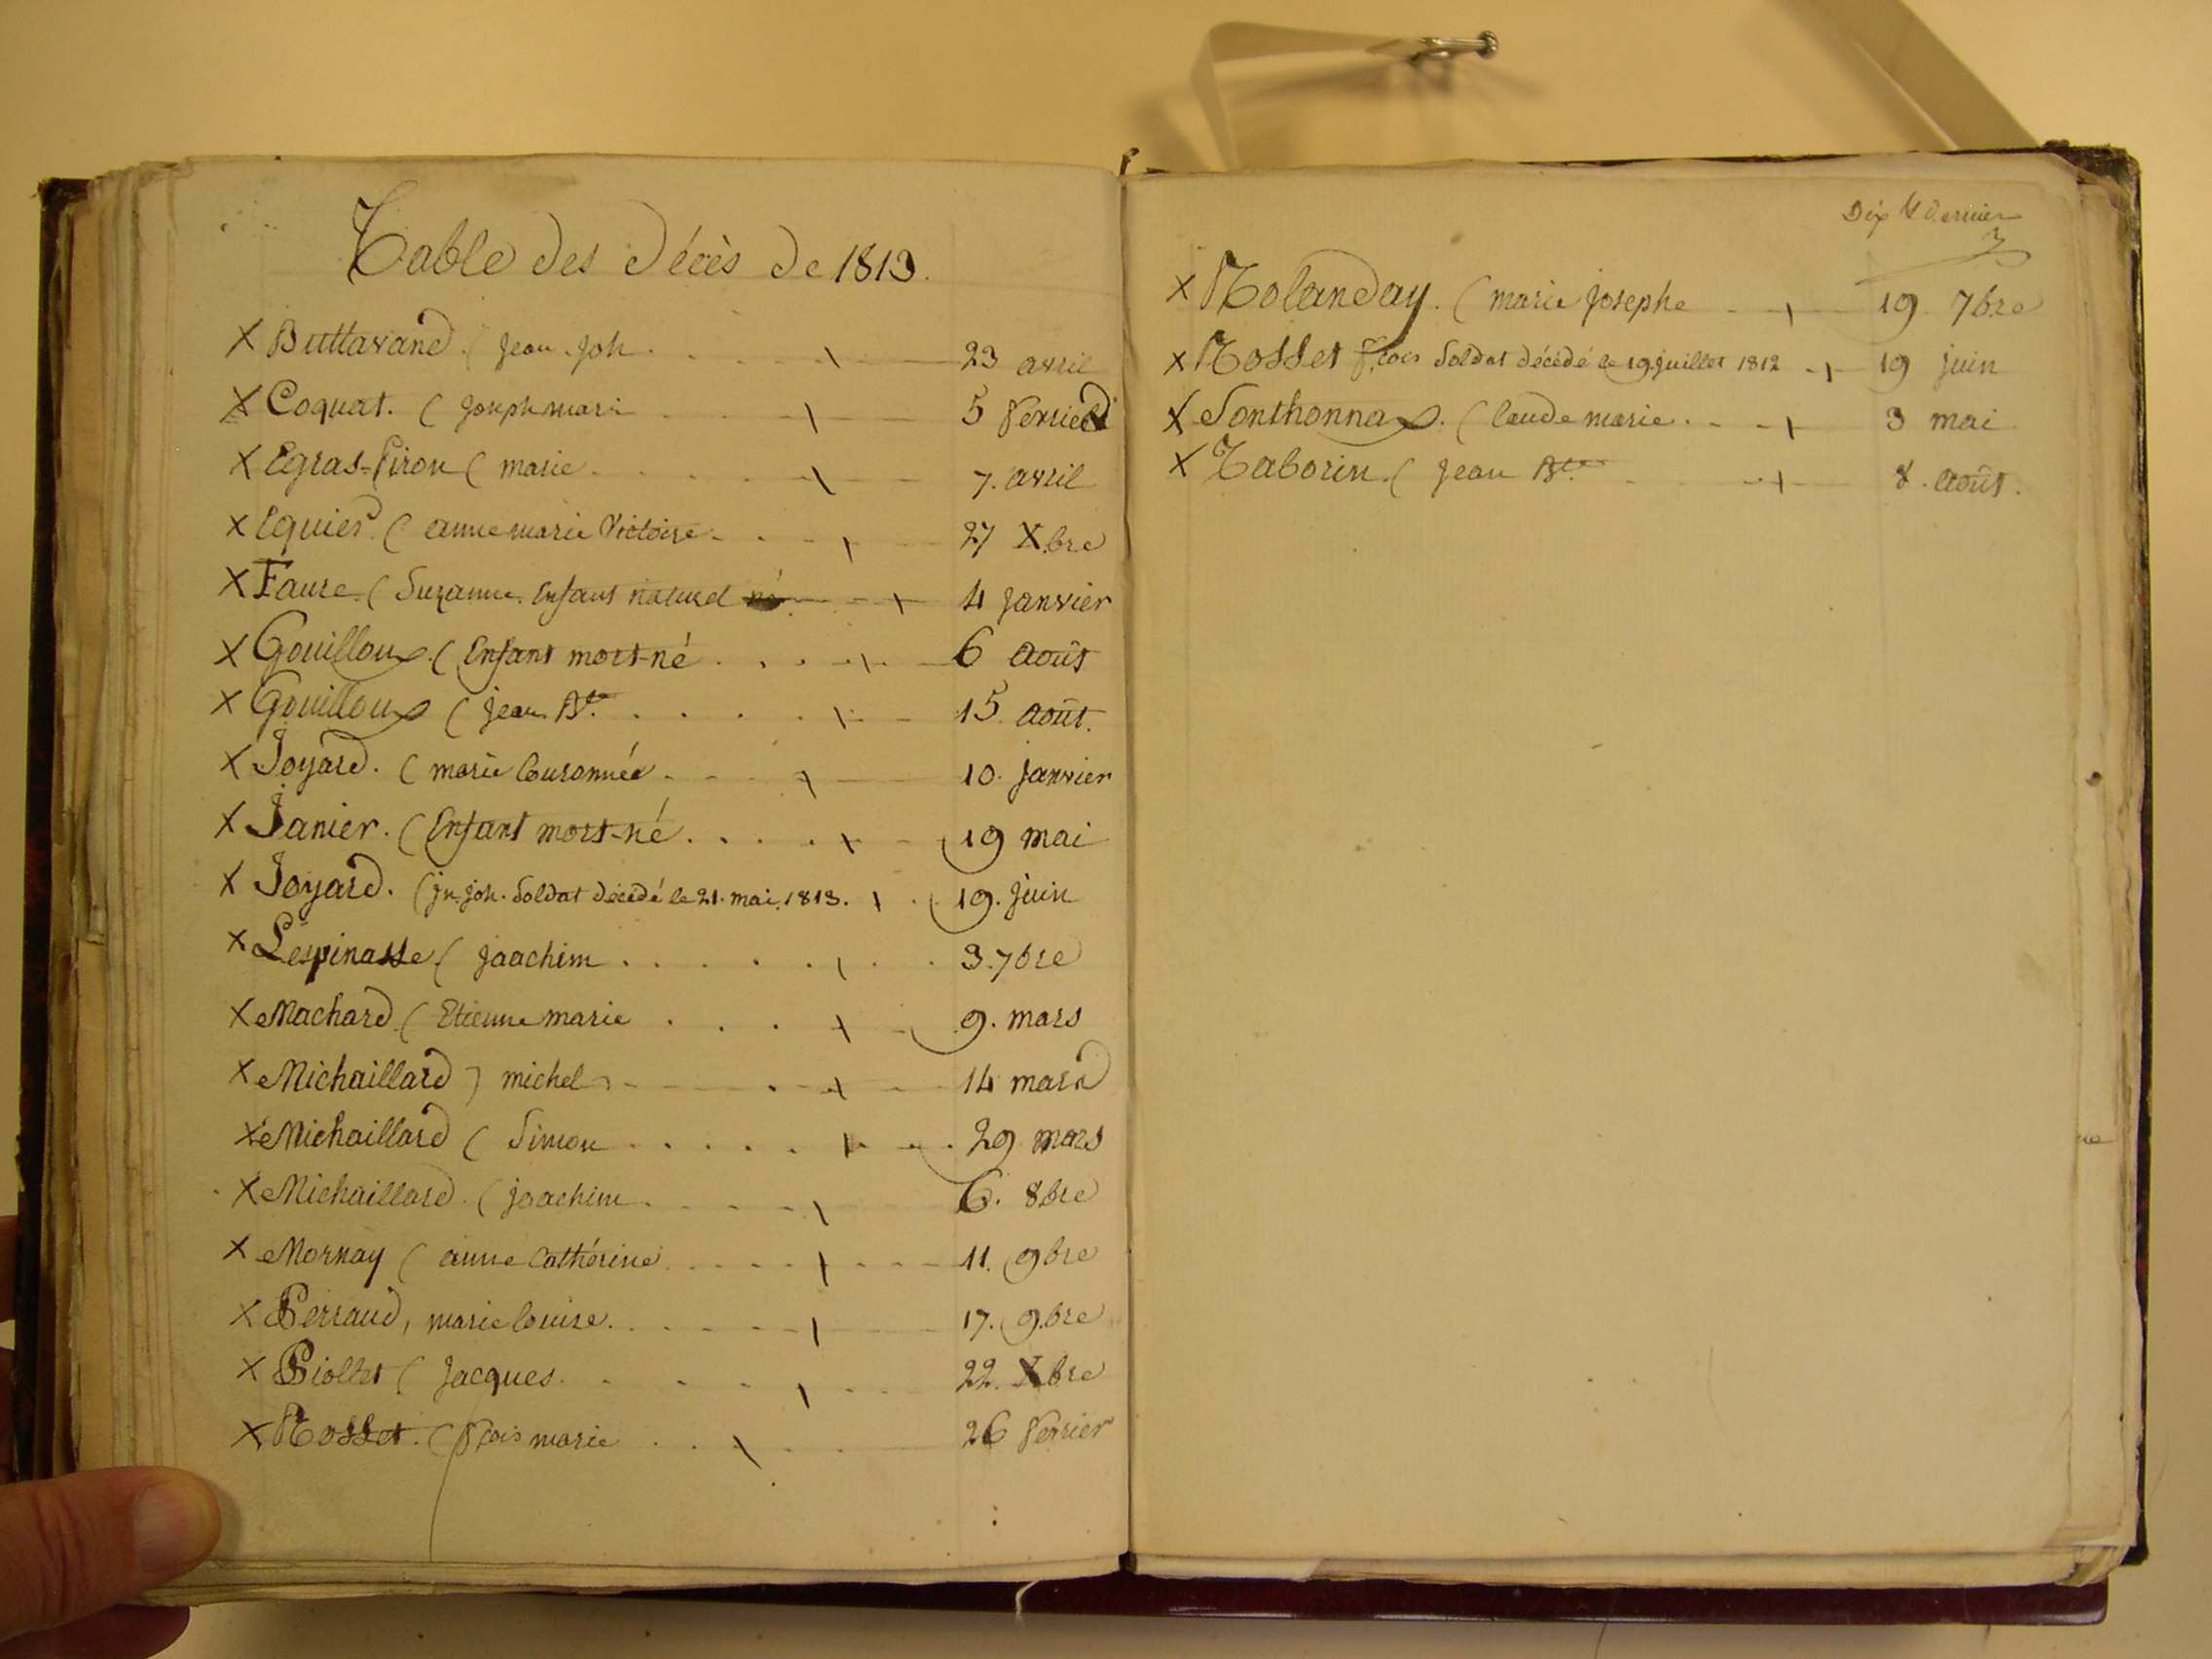 Table des décès de 1813.
X Buttavand. ( jean. joh. 23 avril
X Coquat. ( joseph marie 5 février
X Egras-Piron ( marie. 7. avril
X Equier. ( anne marie Victoire. 27 Xbre
X Faure. ( Suzanne. Enfant naturel né 4 janvier
X Gouilloux. ( Enfant mort-né 6 Août
X Gouilloux ( jean Bte. 15. Août.
X Joyard. ( marie Couronnée. 10. janvier
X Janier. ( Enfant mort-né. 19 mai
X Joyard. ( jn. joh. Soldat décédé le 21. mai. 1813. 19. juin
X Lespinasse ( jaachim 3. 7bre
X Machard ( Etienne marie 9. mars
X Michaillard ) michel 14 mars
X Michaillard ( Simon 29 mars
X Michaillard. ( joachim. 6. 8bre
X Mornay ( anne Cathérine 11. 9bre
X Perraud, marie louise. 17. 9.bre
X Piollet ( jacques. 22. Xbre
X Rosset. ( fcois marie 26 février
Dix & dernier
X Rolanday. ( marie josephe 19 7bre
X Rosset fcois Soldat décédé le 19. juillet 1812 19 juin
X Sonthonnax. ( Claude marie. 3 mai
X Taborin. ( jean Bte. 8. août.